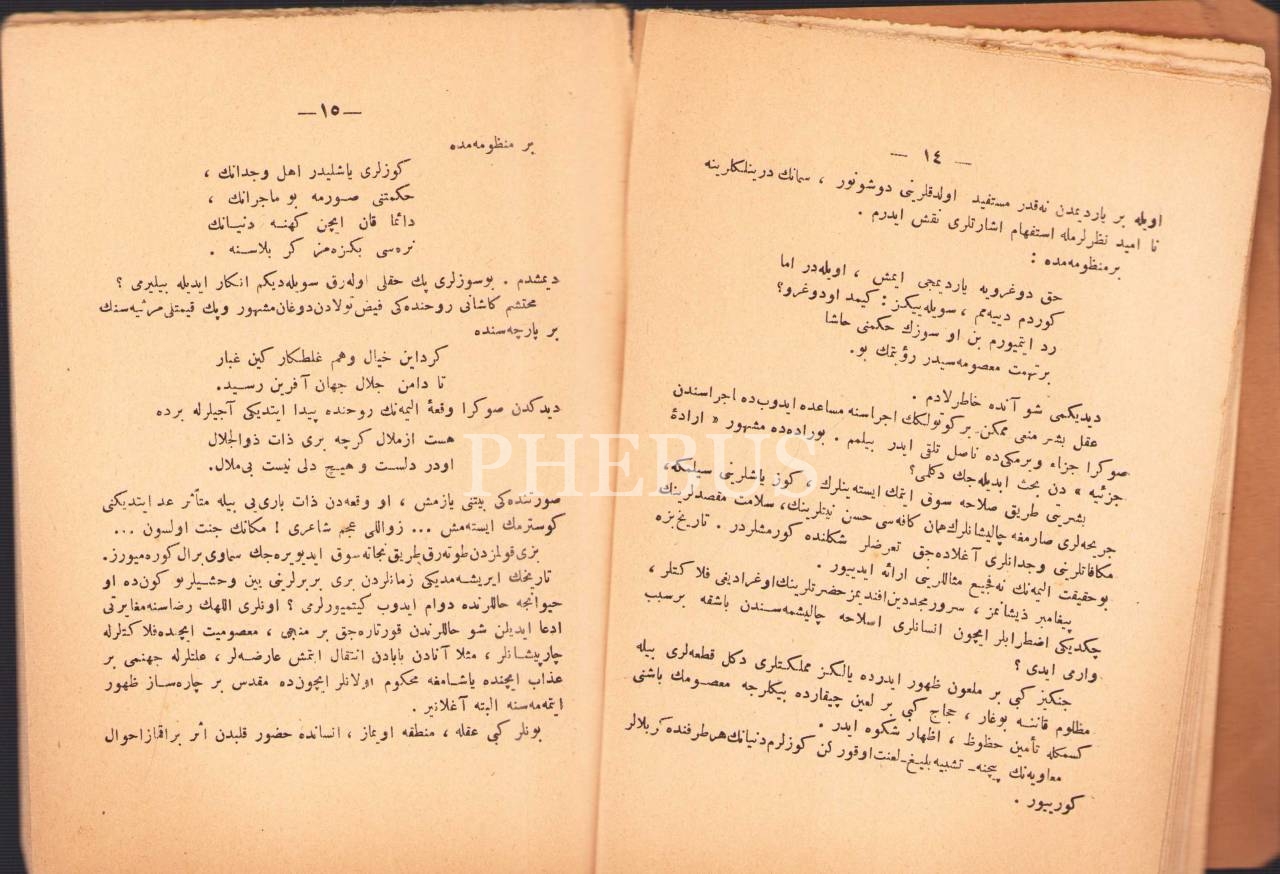 — ١٤ —
اويله بر ياردیمدن نه‌قدر مستفيد اولدقلرينى دوشونور ، سمانك درينلكلرينه
تا اميد نظرلرمله استفهام اشارتلرى نقش ايدرم .
برمنظومه‌مده :
حق دوغرويه ياردیمجى ايمش ، اويله‌در اما
كوردم دييه‌مم ، سويله‌ييكز : كيمد اودوغرو؟
رد ايتميورم بن او سوزك حكمنى حاشا
برتهمت معصومه‌سيدر رؤيتمك بو.
ديديكمى شو آنده خاطرلادم .
عقل بشر منعى ممكن بر كوتولكك اجراسنه مساعده ايدوب‌ده اجراسندن
صوكرا جزاء ويرمكى‌ده ناصل تلقى ايدر بيلمم . بوراده‌ده مشهور « ارادهٔ
جزئيه » دن بحث ايديله‌جك دكلمى؟
بشريتى طريق صلاحه سوق ايتمك ايسته‌ينلرك ، كوز ياشلرينى سيلمكه،
جريحه‌لرى صارمغه چاليشانلرك همان كافه‌سى حسن نيتلرينك، سلامت مقصدلرينك
مكافاتلرينى وجدانلرى آغلاده‌جق تعرضلر شكلنده كورمشلردر . تاريخ بزه
بوحقيقت اليمه‌نك نه‌فجيع مثاللرينى ارائه ايدييور .
پيغامبر ذيشانمز ، سرور مجددين افنديمز حضرتلرينك اوغراديغى فلاكتلر ،
چكديكى اضطرابلر ايچون انسانلرى اصلاحه چاليشمه‌سندن باشقه برسبب
وارمى ايدى ؟
جنكيز كبى بر ملعون ظهور ايدرده يالكز مملكتلرى دكل قطعه‌لرى بيله
مظلوم قاننه بوغار ، حجاج كبى بر لعين چيقارده بيكلرجه معصومك باشنى
كسمكله تأمين حظوظ ، اظهار شكوه ايدر .
معاويه‌نك پيچنه - تشبيه بليغ - لعنت اوقوركن كوزلرم دنيانك هر طرفنده كربلالر
كورييور .
—١٥—
بر منظومه‌مده
كوزلرى ياشليدر اهل وجدانك ،
حكمتنى صورمه بو ماجرانك ،
دائما قان ايچن كهنه دنيانك
نره‌سى بكزه‌مز كر بلاسنه .
ديمشدم . بوسوزلرى پك حقلى اوله‌رق سويله‌ديكم انكار ايديله بيليرمى ؟
محتشم كاشانى روحنده‌كى فيض تولادن دوغان مشهور وپك قيمتلى مرثيه‌سنك
بر پارچه‌سنده
كرد اين خيال وهم غلطكار كين غبار
تا دامن جلال جهان آفرين رسيد.
ديدكدن صوكرا وقعهٔ اليمه‌نك روحنده پيدا ايتديكى آجيلرله برده
هست ازملال كرچه برى ذات ذوالجلال
اودر دلست و هيچ دلى نيست بى‌ملال.
صورتنده‌كى بيتنى يازمش ، او وقعه‌دن ذات بارى‌يى بيله متأثر عد ايتديكنى
كوسترمك ايسته‌مش ... زواللى عجم شاعرى ! مكانك جنت اولسون ...
بزى قولمزدن طوته‌رق طريق نجاته سوق ايديويره‌جك سماوى برال كوره‌ميورز.
تاريخك ايريشه‌مديكى زمانلردن برى بربرلرينى يين وحشيلر بو كون‌ده او
حيوانجه حاللرنده دوام ايدوب كيتميورلرمى ؟ اونلرى اللهك رضاسنه مغايرتى
ادعا ايديلن شو حاللرندن قورتاره‌جق بر منجى ، معصوميت ايچنده فلاكتلرله
چارپيشانلر ، مثلا آنادن بابادن انتقال ايتمش عارضه‌لر ، علتلرله جهنمى بر
عذاب ايچنده ياشامغه محكوم اولانلر ايچون‌ده مقدس بر چاره‌ساز ظهور
ايتمه‌مه‌سنه البته آغلانير .
بونلر كبى عقله ، منطقه اويماز ، انسانده حضور قلبدن اثر براقماز احوال
PHEBUS